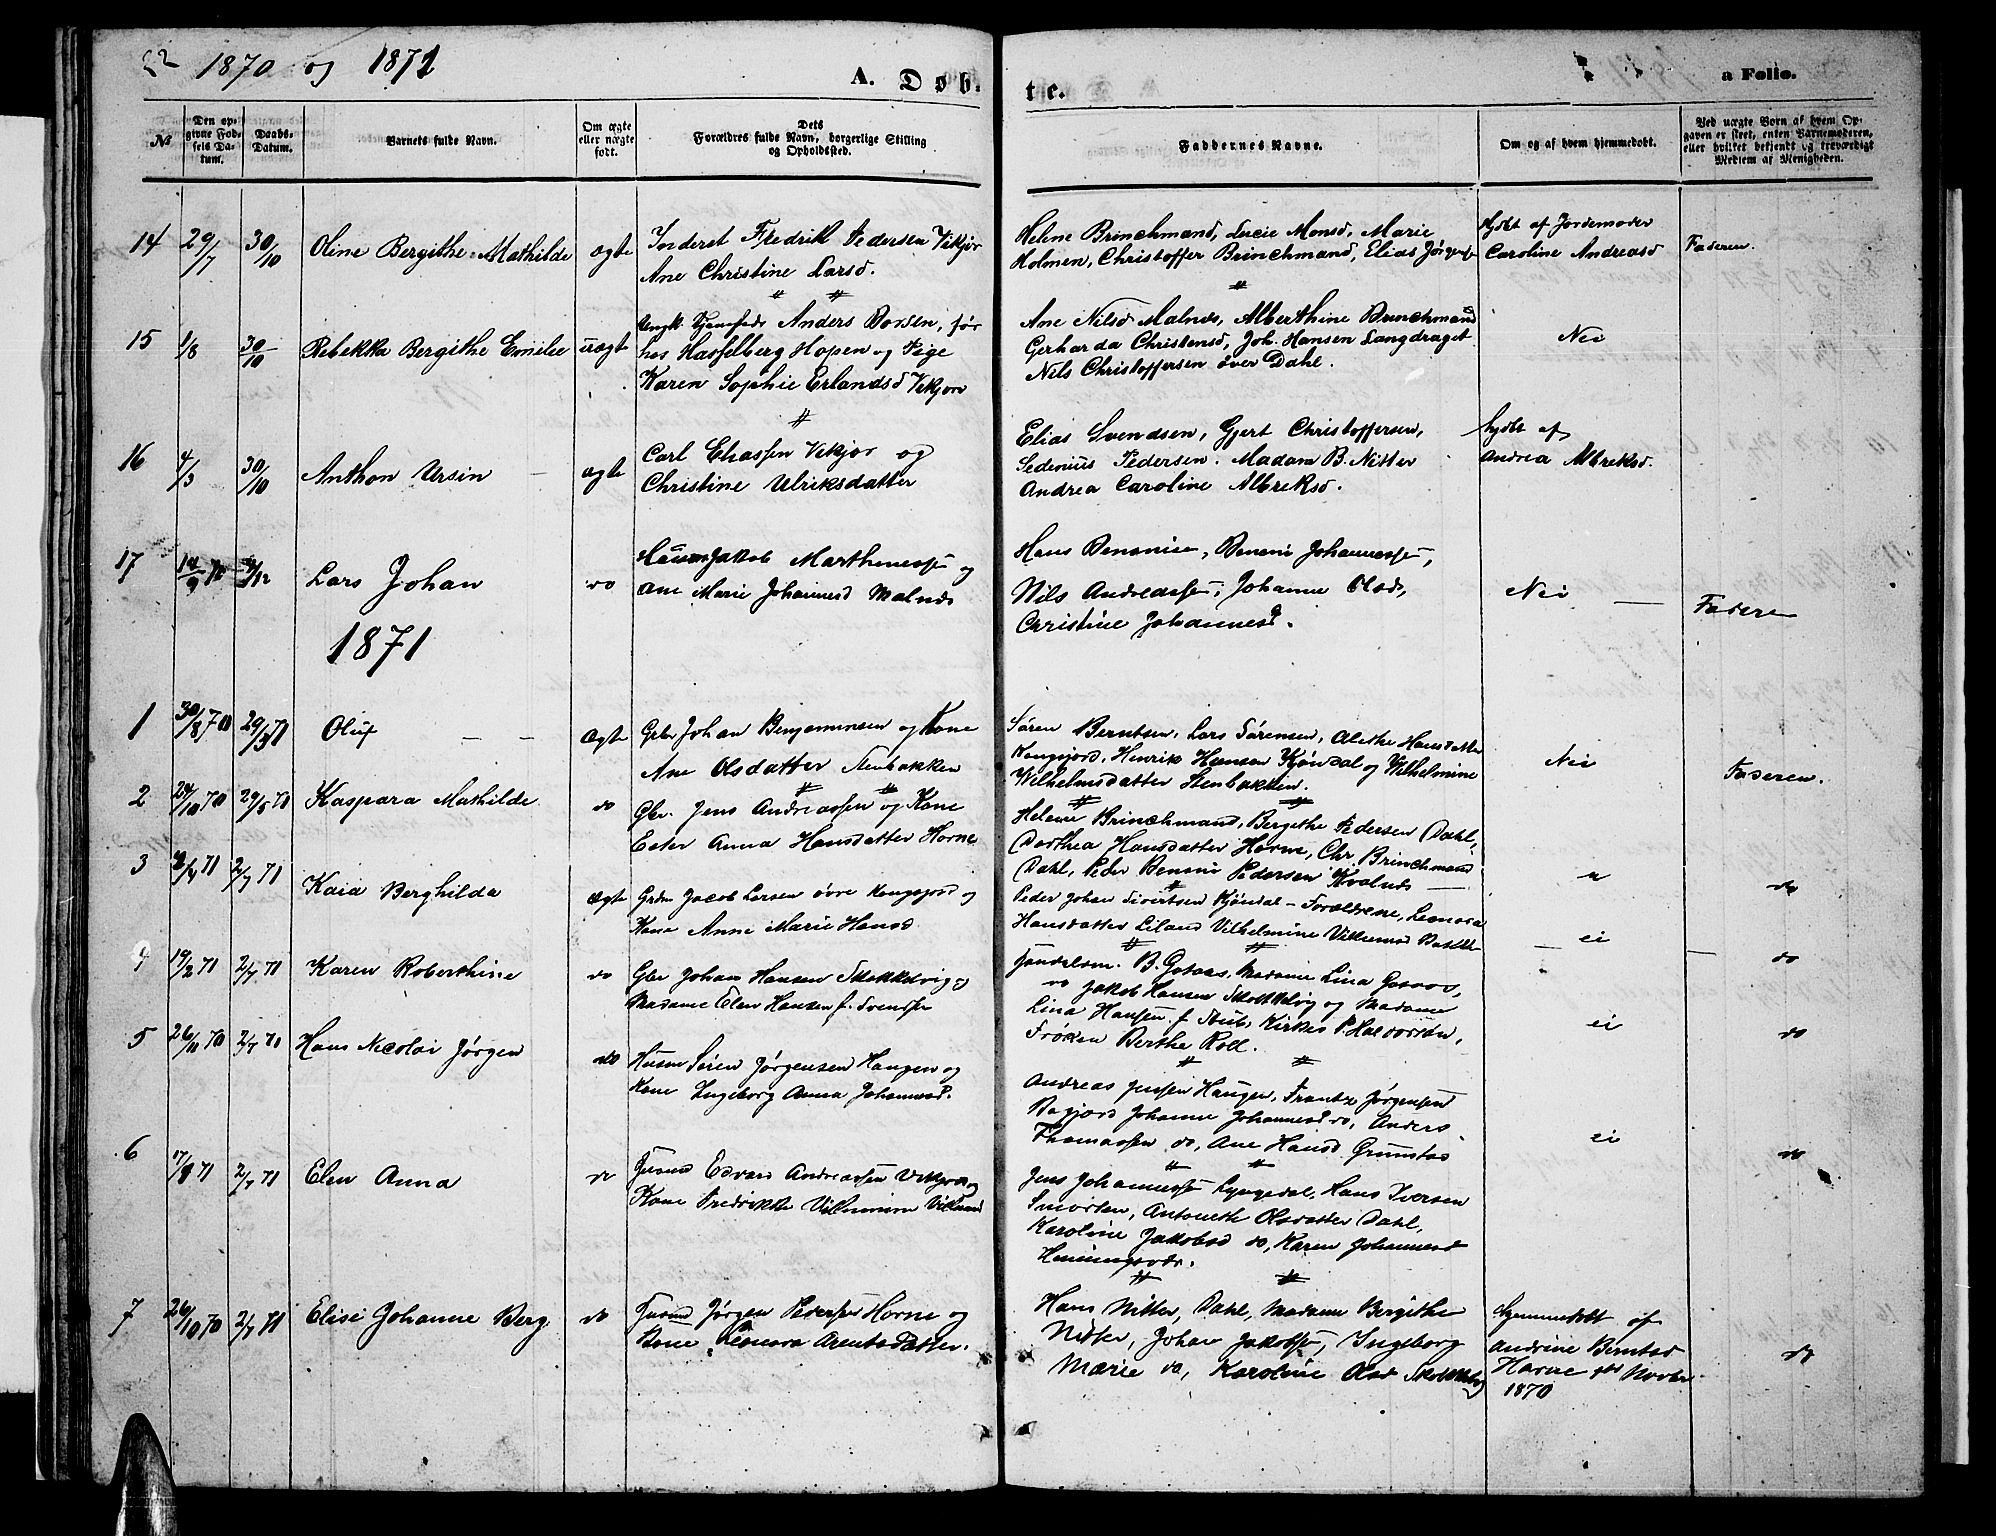 22 1870 og 1871
A. Døb. te. a Folio.
No
Den opgivne Fødsels Datum.
Daabs-Datum.
Barnets fulde Navn.
Om ægte eller uægte født.
Dets Forældres fulde Navn, borgerlige Stilling og Opholdssted.
Faddernes Navne.
Om og af hvem hjemmedøbt.
Ved uægte Børn af hvem Opgaven er skeet, enten Barnemoderen, eller hvilket bekjendt og troværdigt Medlem af Menigheden.
14 29/7 30/10 Oline Bergithe Mathilde ægte
Inderst Fredrik Pedersen Vikjor
Ane Christine Larsd.
Helene Brinchmand, Lucie Monsd, Marie
Holmen, Christoffer Brinchmand, Elias Jørgens
hjdbt af Jordemoder
Caroline Andreasd
Faderen.
15 1/8 30/10 Rebekka Bergithe Emilie uægte
Ungk. Anders Dorsen, før
hos Hasselberg Hopen og Pige
Karen Sophie Erlandsd Vikjor
Ane Nilsd Malnes, Alberthine Brinchmand
Gerharda Christensd, Joh. Hansen Langdraget
Nils Christoffersen över Dahl.
Nei
16 4/3 30/10 Anthon Ursin ægte
Carl Eliassen Vikjor og
Christine Ulriksdatter
Elias Svendsen, Gjert Christoffersen,
Sedenius Pedersen. Madam B. Nitter
Andrea Caroline Albreksd.
hjdbt af
Andrea Albreksd.
17 14/9 70 /12 Lars Johan do
Jakob Marthiness og
Ane Marie Johannesd Malnes
Hans Benonise, Benoni Johannesse,
Nils Andreasse, Johanne Olsd,
Christine Johannesd.
Nei
Fadere
1871
1 30/8 70 29/5 71 Oluf Ægte
Gbr Johan Benjaminsen og Kone
Ane Olsdatter Stenbakken
Søren Berntsen, Lars Sørensen, Alethe Hansdatter
Kongsjord, Henrik Hansen Kjøndal og Wilhelmine
Wilhelmsdatter Stenbakken.
Nei
Faderen.
2 24/10 70 29/5 71 Kaspara Mathilde do
Gbr. Jens Andreassen og Kone
Ester Anna Hansdatter Horne
Helene Brinchmand, Bergithe Pedersen Dahl,
Dorthea Hansdatter Horne, Chr. Brinchmand
Dahl, Peder Benoni Pedersen Kvalnes
"
do
3 /4 71 2/7 71 Kaia Berghilda Ægte
Grdm Jacob Larsen övre Kongsjord og
Kone Anne Marie Hansd
Peder Johan Sivertsen Kjöndal – Forældrene, Leonora
Hansdatter Liland Vilhelmine Villumsd
ei
do
4 19/2 71 2/7 71 Karen Roberthine do
Gbr Johan Hansen Skokkelvig og
Madame Elen Hansen f. Svendsen
Handelsm. B. Gosaas, Madame Lina Gosaas,
do Jakob Hansen Skokkelvig og Madame
Lina Hansen f Stub, Kirkes P. Halvorsen,
Frøken Berthe Roll.
ei
do
5 26/11 70 2/7 71 Hans Nicolai Jørgen do
Husm Søren Jørgensen Haugen og
Kone Ingeborg Anna Johannesd.
Andreas Jensen Haugen, Frantz Jørgensen
Bogjord Johanne Johannesd do, Anders
Thomassen do, Ane Hansd Grunstad
ei
do
6 17/ 71 2/7 71 Elen Anna do
Edvard Andreassen Vikjord og
Kone Fredrikke
Jens Johannesse Lyngedal, Hans Iversen
Smorten, Antoneth Olsdatter Dahl,
Karoline Jakobsd do, Karen Johannesd
Henningsvær.
7 26/10 70 2/7 71 Elise Johanne Berg do
Jørgen Pedersen Horne og
Kone Leonora Arentsdatter.
Hans Nitter, Dahl, Madam Bergithe
Nitter, Johan Jakobse, Ingeborg
Marie do, Karoline Olsd Skokkelvig
hjemmedøbt af
Andrine Berntsd
Horne Novbr
1870
do